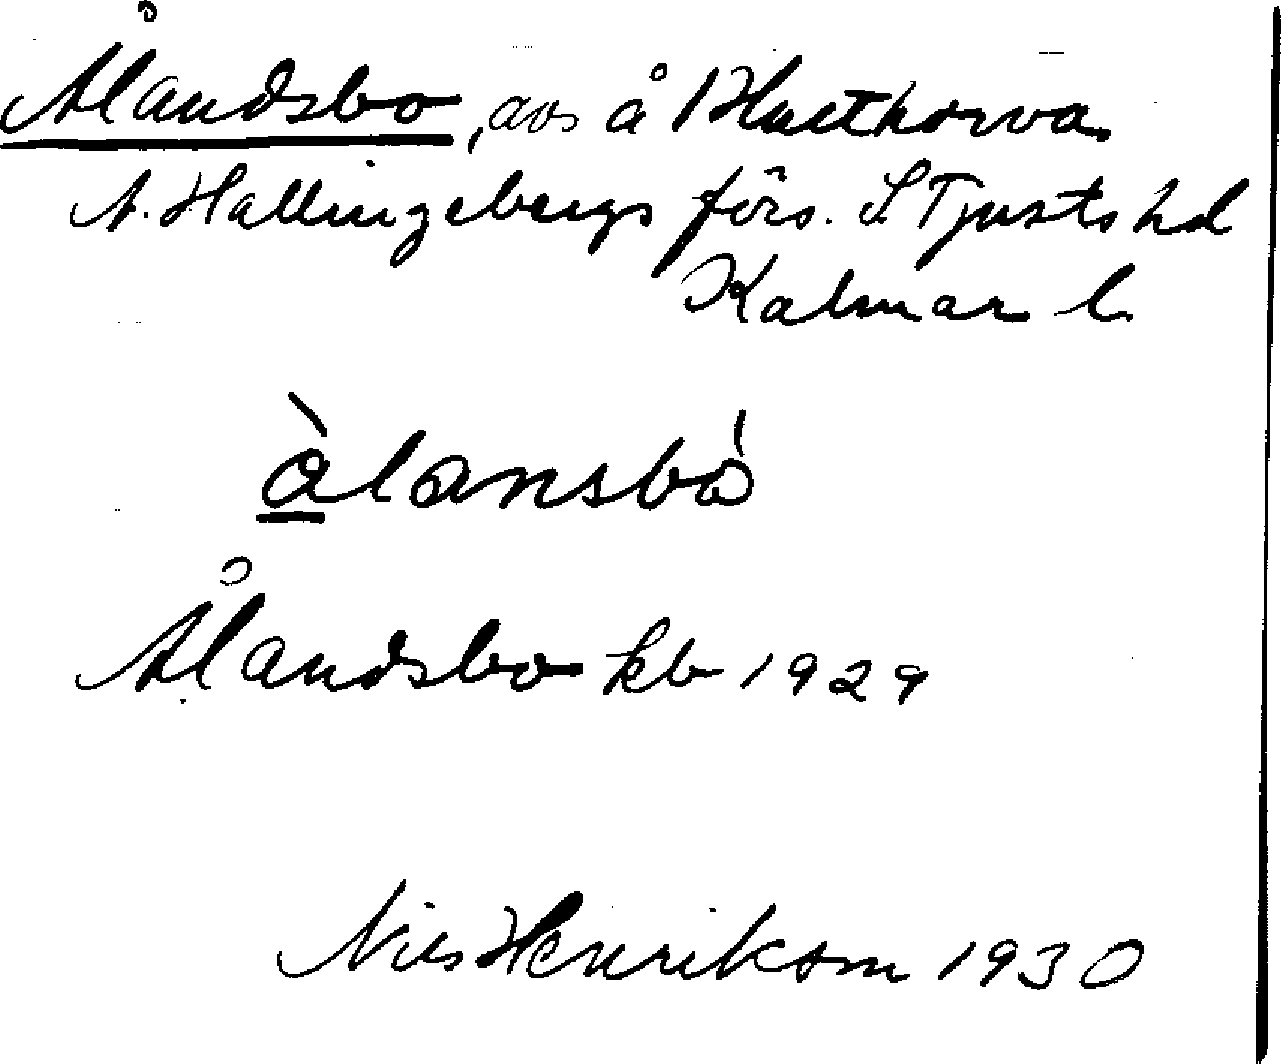 Ålandsbo, avs å 1 Hultkorva
A. Hallingebergs förs. S Tjusts hd
Kalmar l.
àlansbó
Ålandsbo kb 1929
Nils Henrikson 1930